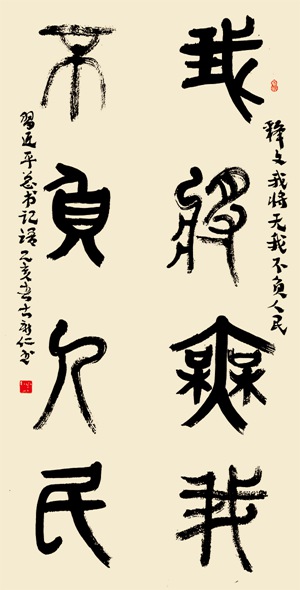 释文我将无我不负人民
我将無我
不負人民
習近平总书记语己亥